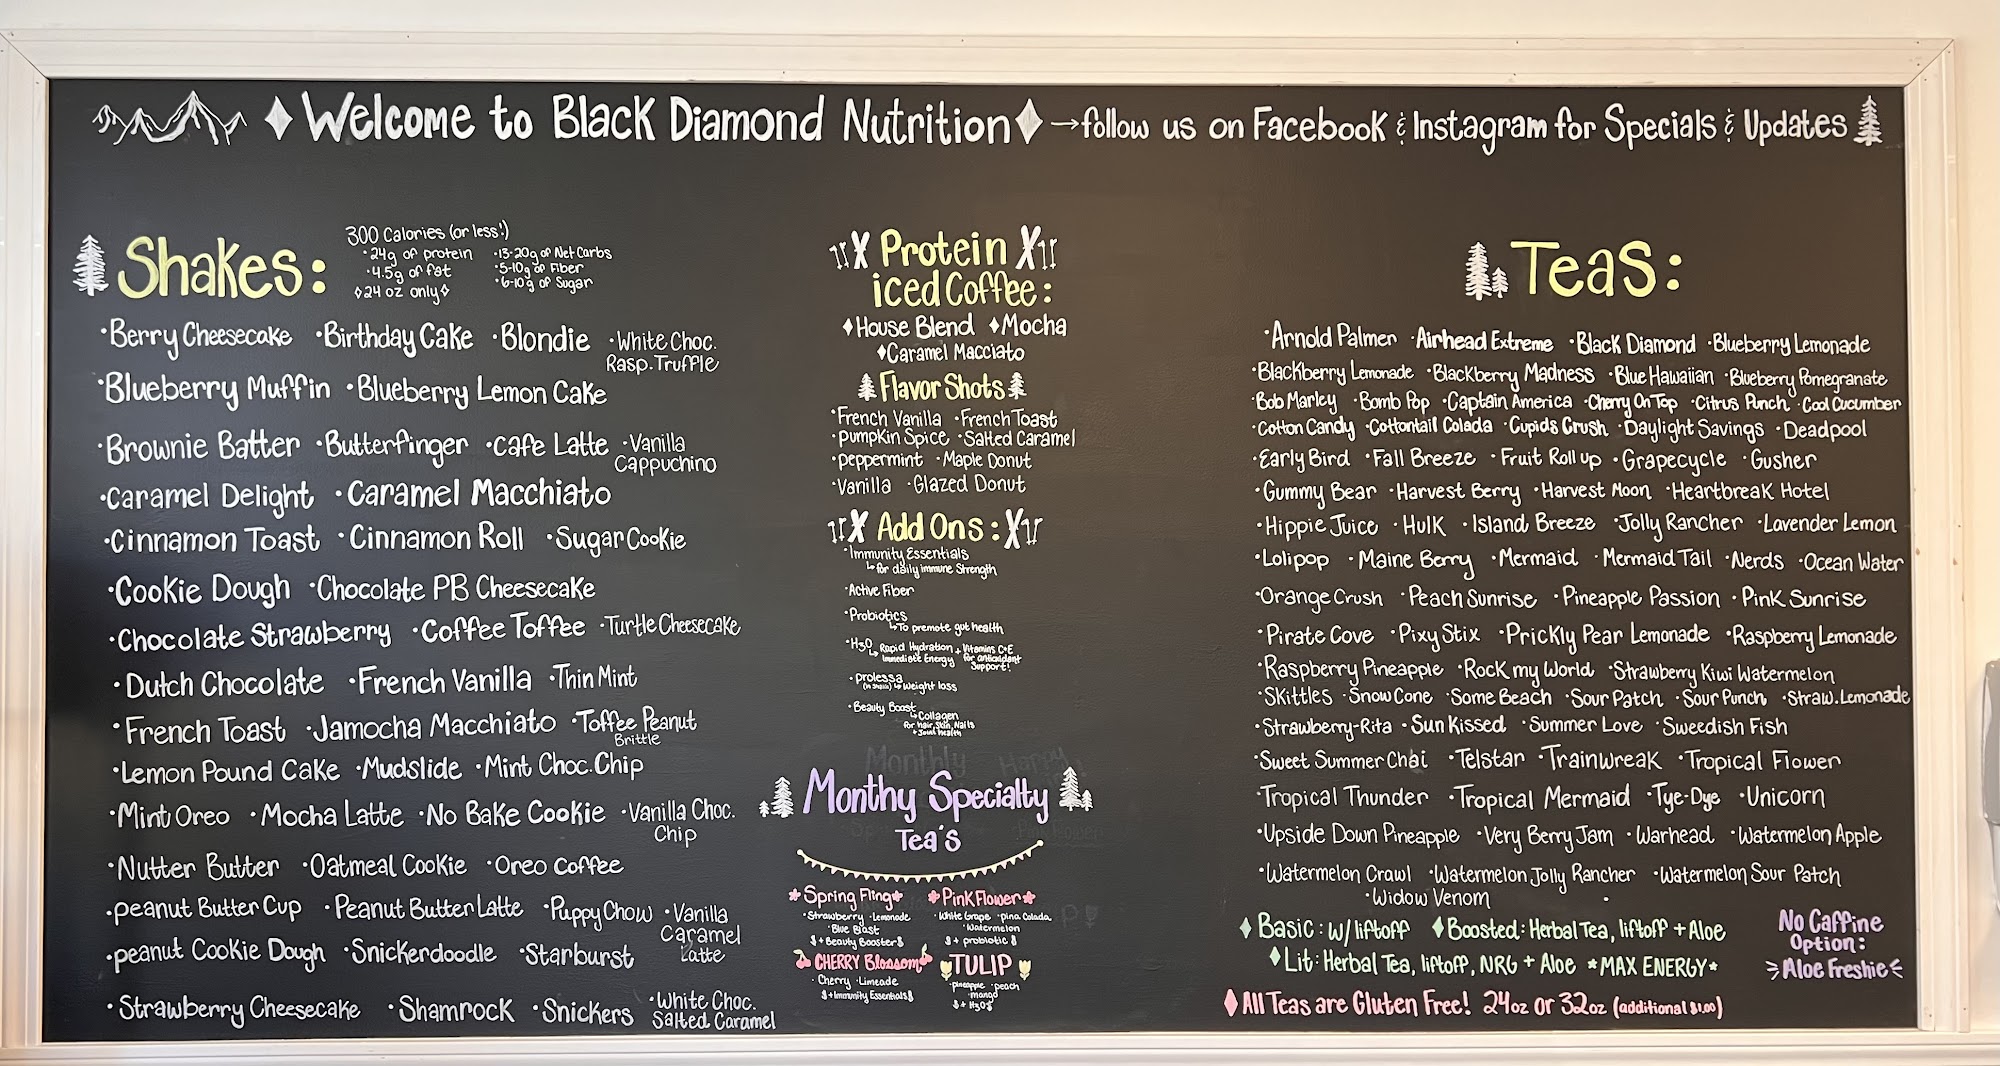 Welcome to Black Diamond Nutrition →follow us on Facebook & Instagram for Specials & Updates
Shakes:
300 Calories (or less!)
·24g of protein ·13-20g of Net Carbs
·4.5g of fat ·5-10g of Fiber
24 oz only ·6-10g of Sugar
·Berry Cheesecake ·Birthday Cake ·Blondie ·White Choc.
Rasp. Truffle
·Blueberry Muffin ·Blueberry Lemon Cake
·Brownie Batter ·Butterfinger ·Cafe Latte ·Vanilla
Cappuchino
·Caramel Delight ·Caramel Macchiato
·Cinnamon Toast ·Cinnamon Roll ·Sugar Cookie
·Cookie Dough ·Chocolate PB Cheesecake
·Chocolate Strawberry ·Coffee Toffee ·Turtle Cheesecake
·Dutch Chocolate ·French Vanilla ·Thin Mint
·French Toast ·Jamocha Macchiato ·Toffee Peanut
Brittle
·Lemon Pound Cake ·Mudslide ·Mint Choc. Chip
·Mint Oreo ·Mocha Latte ·No Bake Cookie ·Vanilla Choc.
Chip
·Nutter Butter ·Oatmeal Cookie ·Oreo Coffee
·Peanut Butter Cup ·Peanut Butter Latte ·Puppy Chow ·Vanilla
Caramel
Latte
·Peanut Cookie Dough ·Snickerdoodle ·Starburst
·Strawberry Cheesecake ·Shamrock ·Snickers ·White Choc.
Salted Caramel
Protein
iced Coffee:
House Blend Mocha
Caramel Macciato
Flavor Shots
·French Vanilla ·French Toast
·Pumpkin Spice ·Salted Caramel
·Peppermint ·Maple Donut
·Vanilla ·Glazed Donut
Add Ons:
·Immunity Essentials
↳for daily immune Strength
·Active Fiber
·Probiotics
↳To premote gut health
·H3O
↳Rapid Hydration + Vitamins C+E
Immediate Energy for antioxidant
Support!
·Prolessa
(in Shake) ↳weight loss
·Beauty Boost
↳Collagen
for hair, Skin, Nails
+ Joint health
Monthly Happy
Monthy Specialty
Tea's
Spring Fling
·Strawberry ·Lemonade
·Blue Blast
$+Beauty Booster$
Pink Flower
·White Grape ·pina Colada
·Watermelon
$+ probiotic $
CHERRY Blossom
·Cherry ·Limeade
$+Immunity Essentials$
TULIP
·pineapple ·peach
·mango
$+ H3O$
Teas:
·Arnold Palmer ·Airhead Extreme ·Black Diamond ·Blueberry Lemonade
·Blackberry Lemonade ·Blackberry Madness ·Blue Hawaiian ·Blueberry Pomegranate
·Bob Marley ·Bomb Pop ·Captain America ·Cherry On Top ·Citrus Punch ·Cool Cucumber
·Cotton Candy ·Cottontail Colada ·Cupids Crush ·Daylight Savings ·Deadpool
·Early Bird ·Fall Breeze ·Fruit Roll up ·Grapecycle ·Gusher
·Gummy Bear ·Harvest Berry ·Harvest Moon ·Heartbreak Hotel
·Hippie Juice ·Hulk ·Island Breeze ·Jolly Rancher ·Lavender Lemon
·Lolipop ·Maine Berry ·Mermaid ·Mermaid Tail ·Nerds ·Ocean Water
·Orange Crush ·Peach Sunrise ·Pineapple Passion ·Pink Sunrise
·Pirate Cove ·Pixy Stix ·Prickly Pear Lemonade ·Raspberry Lemonade
·Raspberry Pineapple ·Rock my World ·Strawberry Kiwi Watermelon
·Skittles ·Snow Cone ·Some Beach ·Sour Patch ·Sour Punch ·Straw. Lemonade
·Strawberry-Rita ·Sun Kissed ·Summer Love ·Sweedish Fish
·Sweet Summer Chai ·Telstar ·Trainwreak ·Tropical Flower
·Tropical Thunder ·Tropical Mermaid ·Tye-Dye ·Unicorn
·Upside Down Pineapple ·Very Berry Jam ·Warhead ·Watermelon Apple
·Watermelon Crawl ·Watermelon Jolly Rancher ·Watermelon Sour Patch
·Widow Venom
Basic: w/ liftoff Boosted: Herbal Tea, liftoff + Aloe
Lit: Herbal Tea, liftoff, NRG + Aloe *MAX ENERGY*
No Caffine
Option:
Aloe Freshie
All Teas are Gluten Free! 24oz or 32oz (additional $1.00)